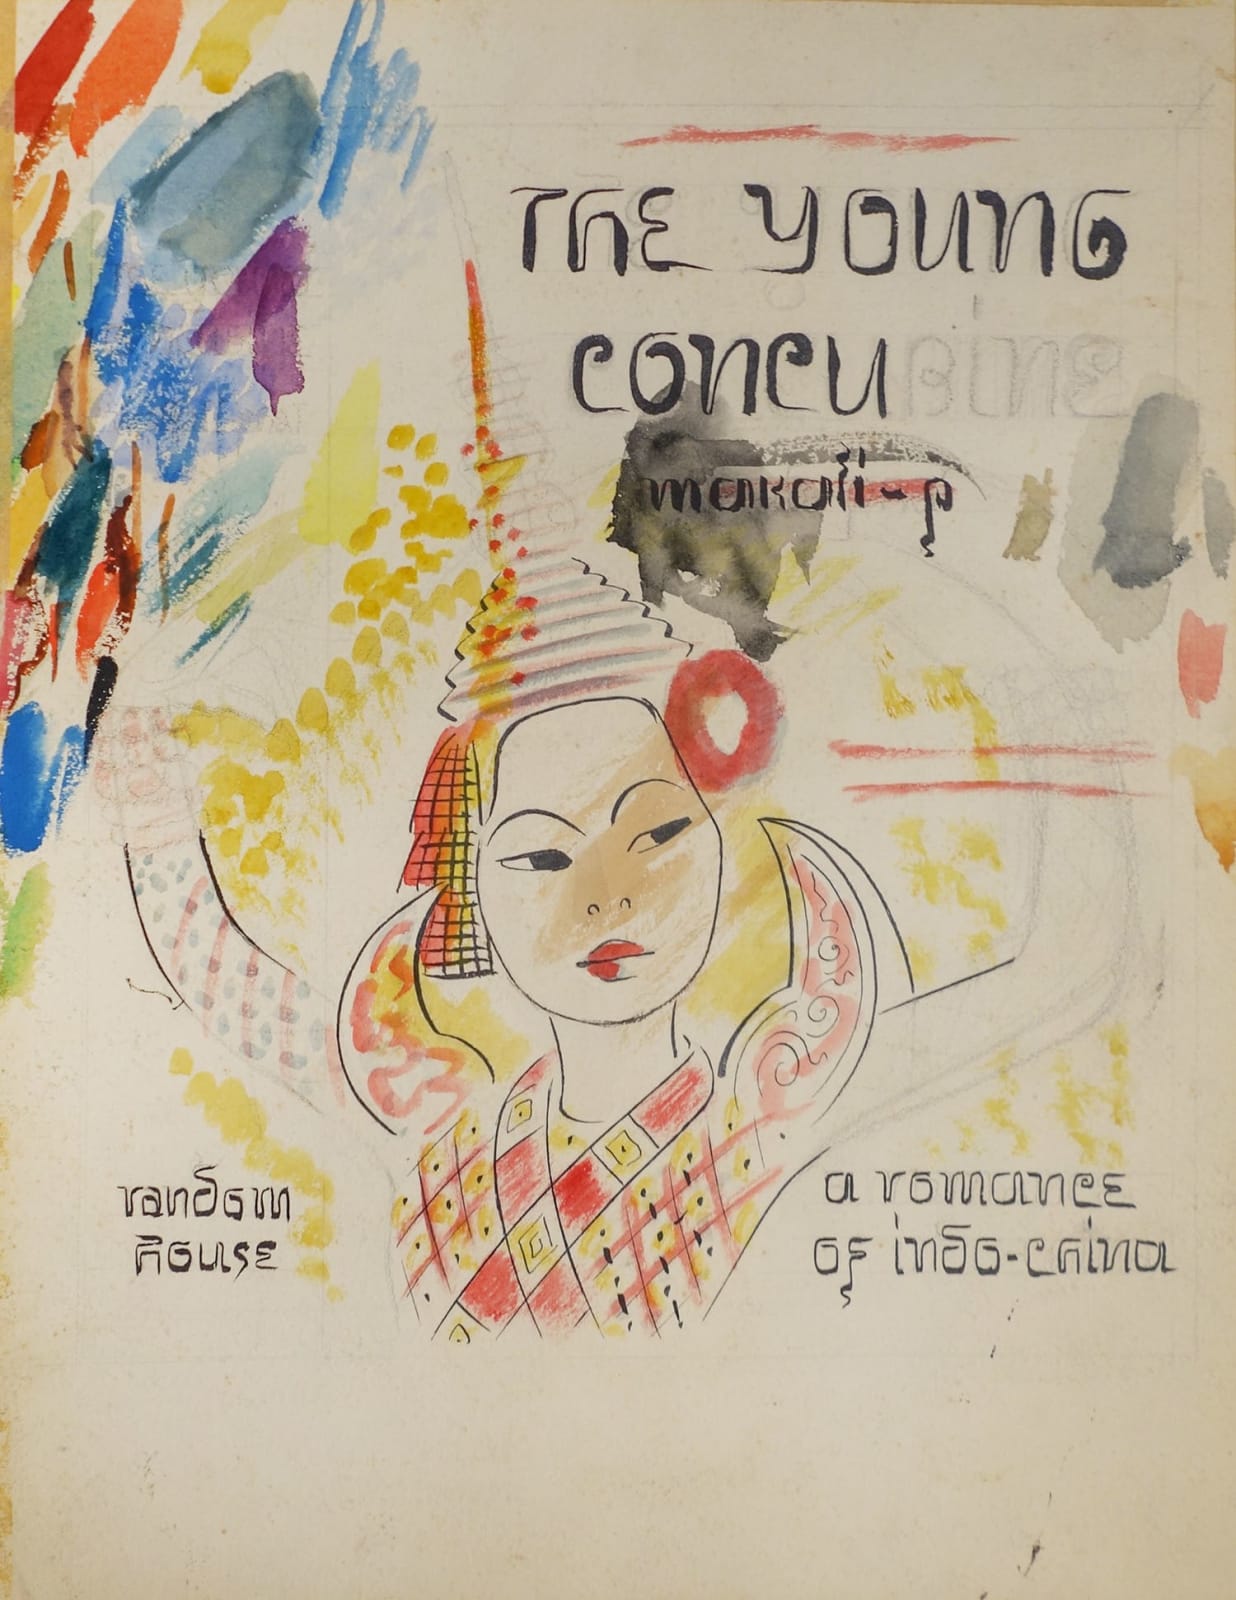 THE YOUNG
CONCUBINE
makali-p
random
house
a romance
of indo-china